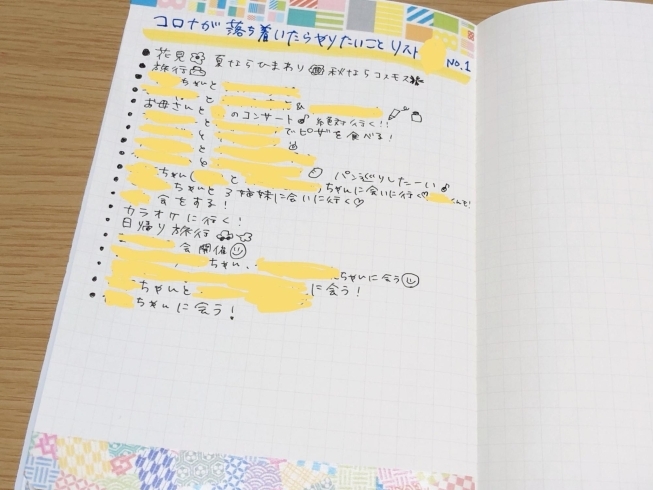 コロナが落ち着いたらやりたいことリスト No.1
花見 夏ならひまわり 秋ならコスモス
旅行
ちゃんと
と &
お母さんと のコンサート♪絶対行く!!
と でピザを食べる!
と
と
ちゃん と パン巡りしたーい♪
ちゃんと3姉妹に会いに行く♡ ちゃんに会いに行く♡
会をする!
カラオケに行く!
日帰り旅行
会開催
ちゃん、 ちゃんに会う
ちゃんと に会う!
ちゃんに会う!